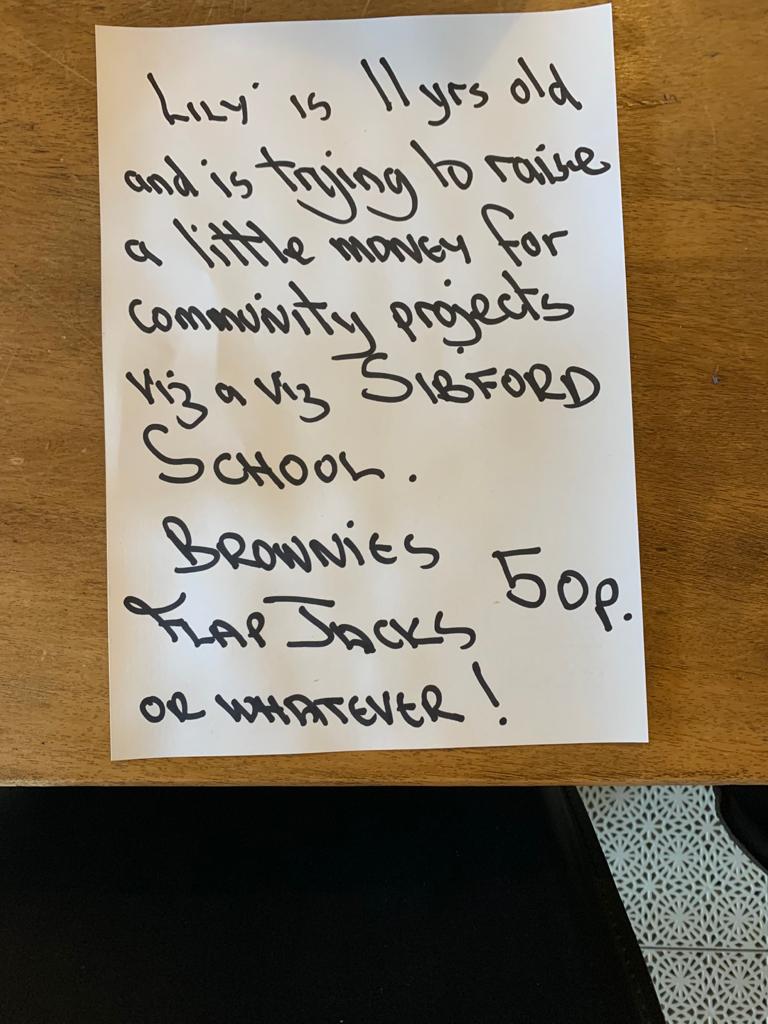 LILY is 11 yrs old
and is trying to raise
a little money for
community projects
viz a viz SIBFORD
SCHOOL.
BROWNIES
50p.
FLAP JACKS
OR WHATEVER!